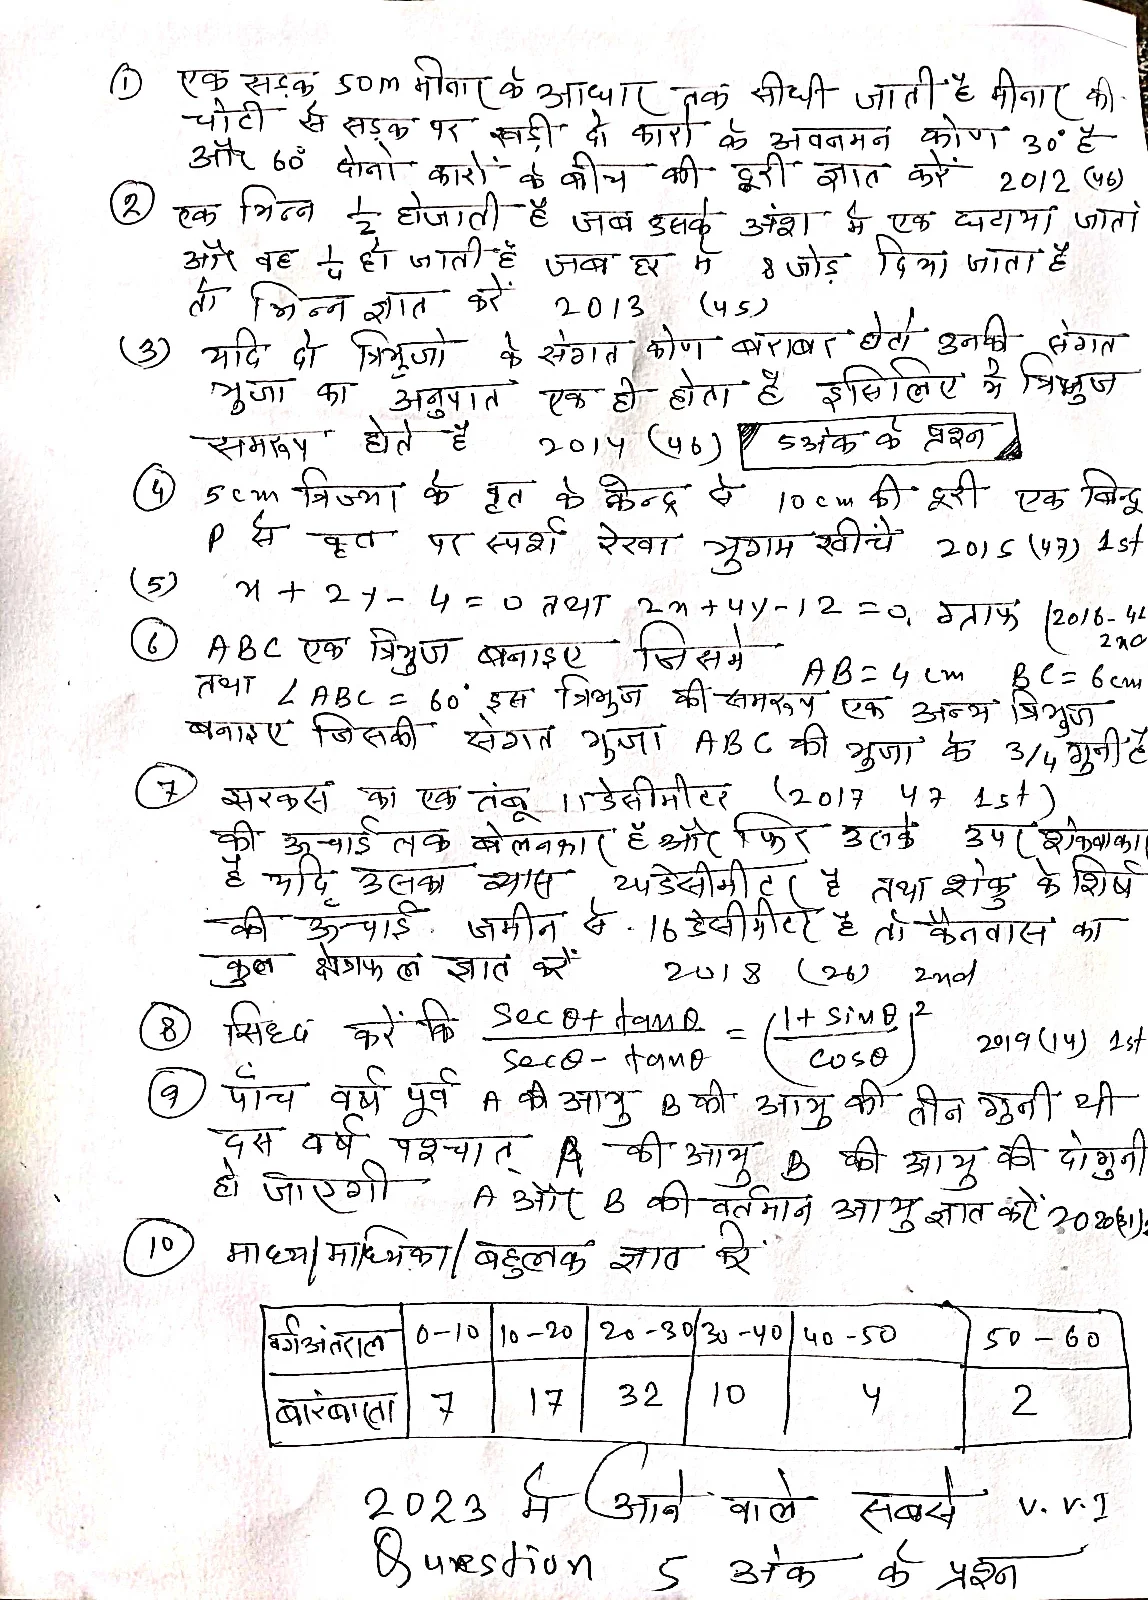 ① एक सड़क 50m मीनार के आधार तक सीधी जाती है मीनार की
चोटी से सड़क पर खड़ी दो कारो के अवनमन कोण 30° है
और 60° दोनो कारों के बीच की दूरी ज्ञात करें 2012 (46)
② एक भिन्न 1/2 होजाती है जब उसके अंश मे एक घटाया जाता
और वह 1/4 हो जाती है जब हर मे 8 जोड़ दिया जाता है
तो भिन्न ज्ञात करें 2013 (45)
(3) यदि दो त्रिभुजो के संगत कोण बराबर होतो उनकी संगत
भुजा का अनुपात एक ही होता है इसिलिए ये त्रिभुज
समरूप होते है 2014 (46) 5 अंक के प्रश्न
④ 5cm त्रिज्या के वृत के केन्द्र से 10cm की दूरी एक बिन्दु
P से वृत पर स्पर्श रेखा युगम खीचें 2015 (47) 1st
(5) x + 2y - 4 = 0 तथा 2x + 4y - 12 = 0. ग्राफ (2016 -
2nd
⑥ ABC एक त्रिभुज बनाइए जिसमे AB = 4 cm BC = 6cm
तथा ∠ABC = 60° इस त्रिभुज की समरूप एक अन्य त्रिभुज
बनाइए जिसकी संगत भुजा ABC की भुजा के 3/4 गुनी है
⑦ सरकस का एक तंबू 11 डेसीमीटर (2017 47 1st)
की ऊचाई तक बेलनकार है और फिर उसके उपर शंकवाकार
है यदि उसका व्यास 24डेसीमीटर है तथा शंकु के शिर्ष
की ऊचाई. जमीन से. 16 डेसीमीटर है तो कैनवास का
कुल क्षेत्रफल ज्ञात करें 2018 (26) 2nd
⑧ सिध्द करें कि secθ + tanθ / secθ - tanθ = (1 + sinθ / cosθ)² 2019 (14) 1st
⑨ पाँच वर्ष पूर्व A की आयु B की आयु की तीन गुनी थी
दस वर्ष पश्चात् A की आयु B की आयु की दोगुनी
हो जाएगी A और B की वर्तमान आयु ज्ञात करें 2020(31)
⑩ माध्य/माध्यिका/बहुलक ज्ञात करें
वर्गअंतराल 0-10 10-20 20-30 30-40 40-50 50-60
बारंबारता 7 17 32 10 4 2
2023 मे आने वाले सबसे V.V.I
Question 5 अंक के प्रश्न